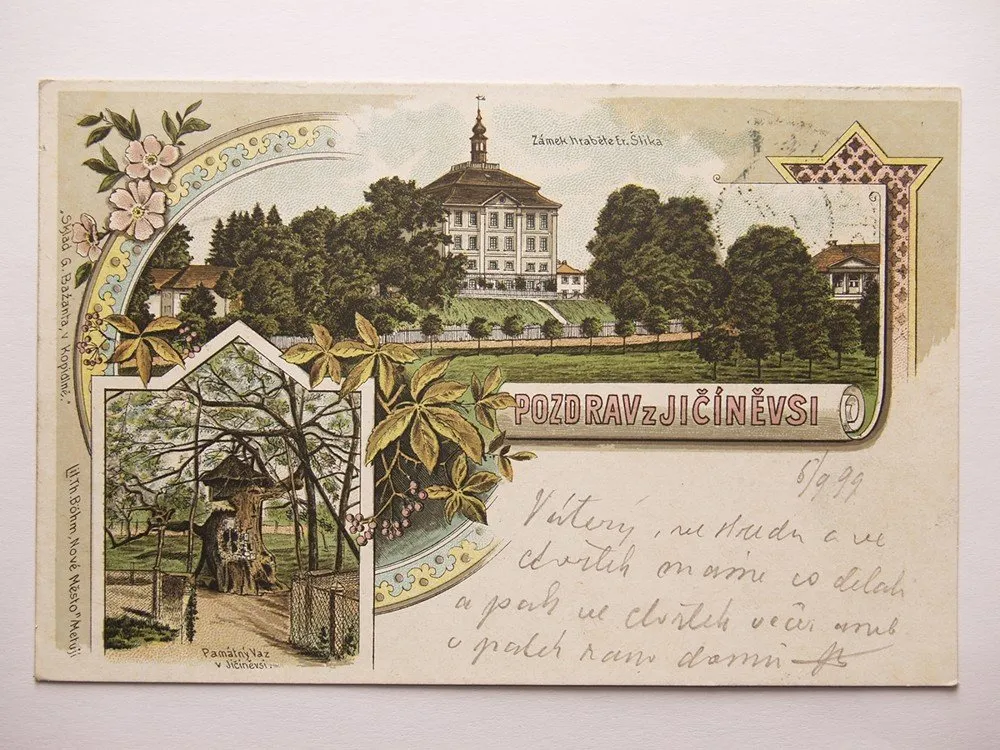 Zámek hraběte Er. Šlika
POZDRAV Z JIČÍNĚVSI
"Sklad G. Bažanta, v Kopidlně."
Lit. Th. Böhm, Nové Město n/Metují
Památný Vaz
v Jičíněvsi.
5/9 99
V úterý, ve středu a ve
čtvrtek máme co dělati
a pak ve čtvrtek večer aneb
v pátek ráno domů